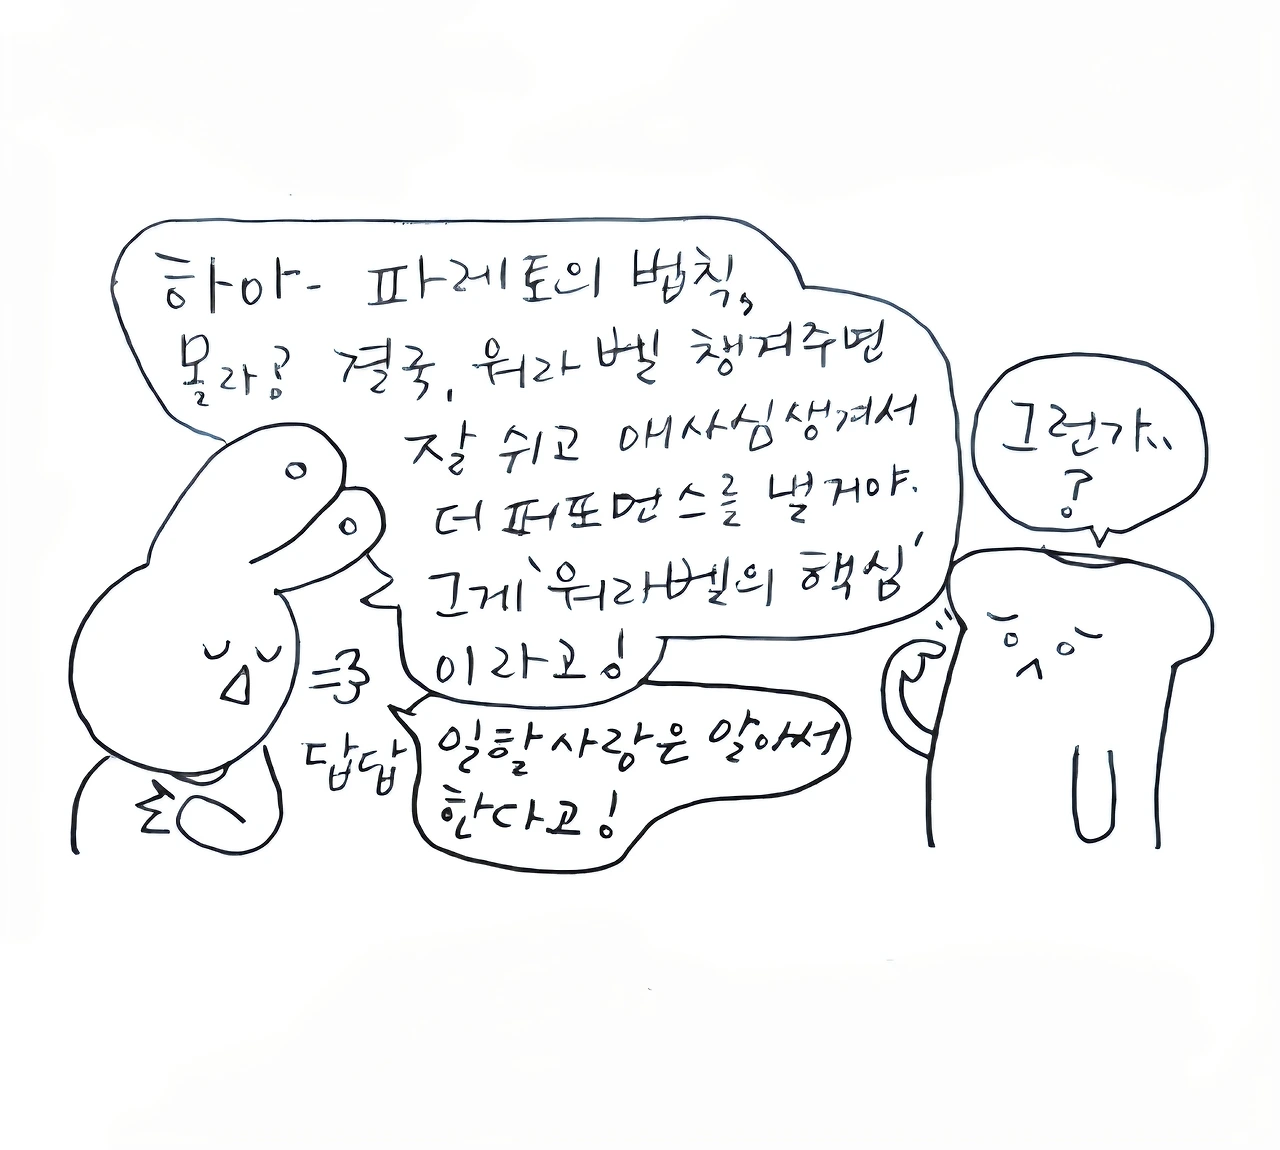 하아- 파레토의 법칙,
몰라? 결국, 워라벨 챙겨주면
잘 쉬고 애사심생겨서
더 퍼포먼스를 낼거야.
그게 '워라벨의 핵심'
이라고!
그런가..
?
답답
일할사람은 알아서
한다고!